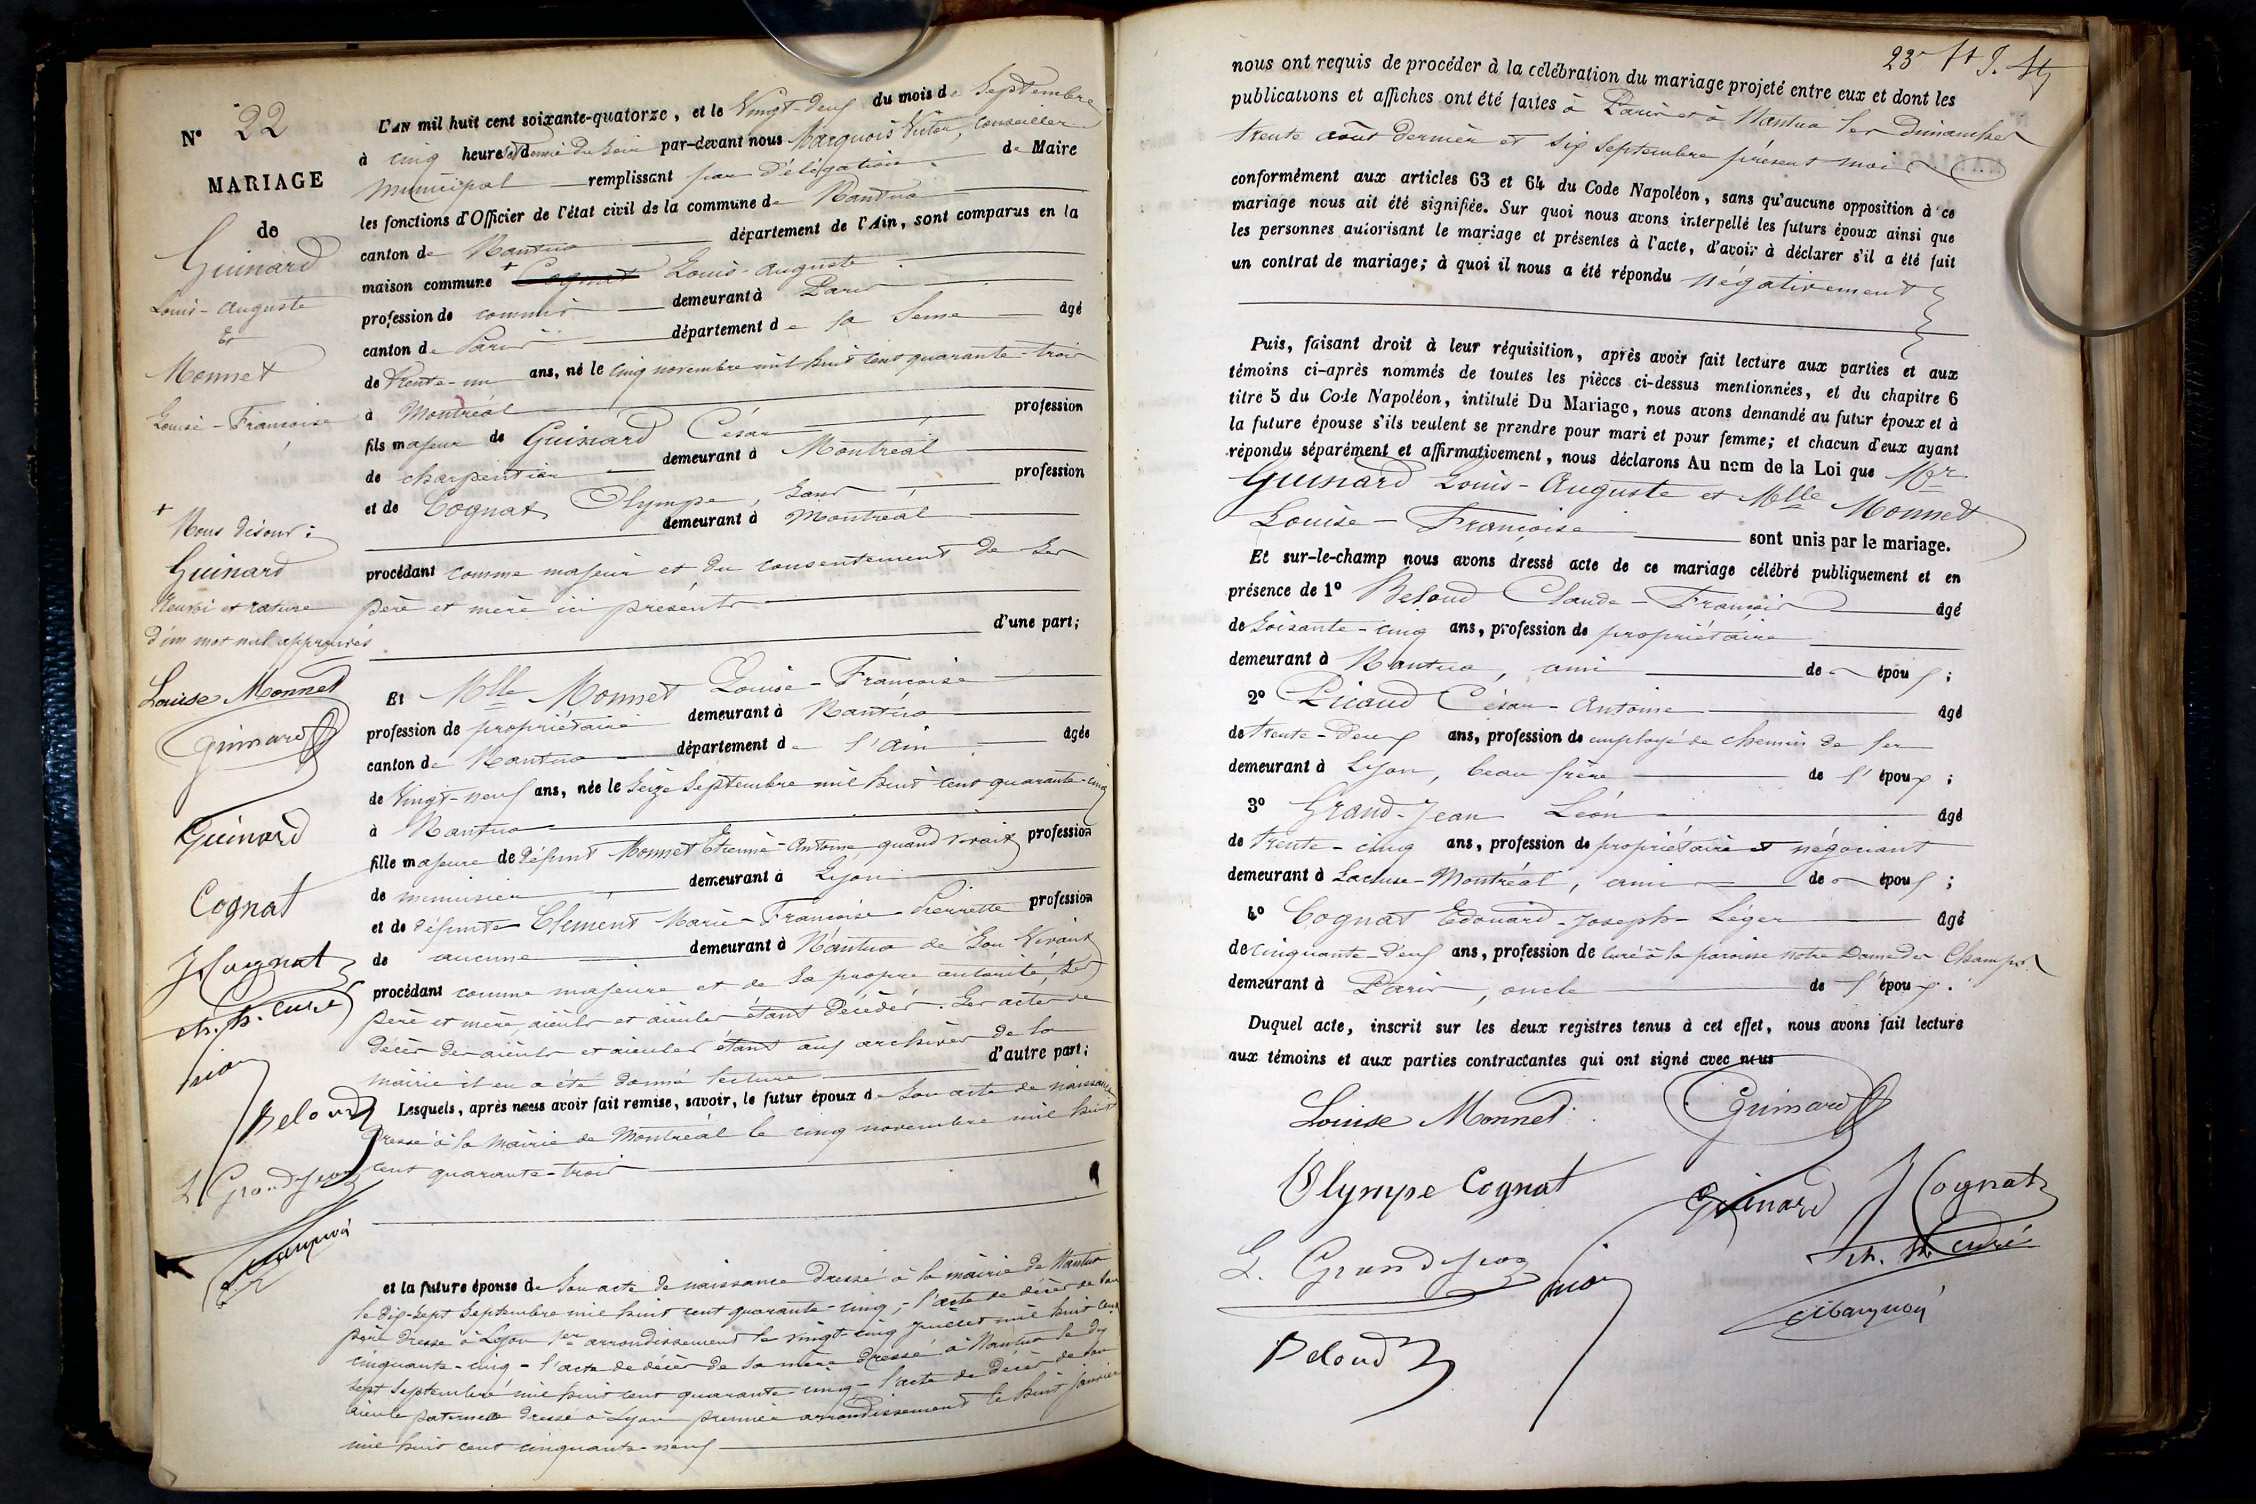 N° 22
MARIAGE
de
Guinard
Louis-Auguste
et
Monnet
Louise-Françoise
+
Nous disons :
Guinard
Renvoi et rature
d'un mot nul approuvés
Louise Monnet
Guinard
Guinard
Cognat
J Cognat
ch. h. curé
Beloud
L Grandjean
L'AN mil huit cent soixante-quatorze, et le Vingt-deux du mois de Septembre
à cinq heures et demie du soir par-devant nous Marquois Victor, Conseiller
Municipal remplissant par délégation de Maire
les fonctions d'Officier de l'état civil de la commune de Nantua
canton de Nantua département de l'Ain, sont comparus en la
maison commune + Cognat Louis-Auguste
profession de commis demeurant à Paris
canton de Paris département de la Seine âgé
de Trente-un ans, né le cinq novembre mil huit cent quarante-trois
à Montréal
fils majeur de Guinard César, profession
de charpentier demeurant à Montréal
et de Cognat Olympe, sans, profession
demeurant à Montréal
procédant comme majeur et du consentement de ses
père et mère ici présents
d'une part;
Et Mlle Monnet Louise-Françoise
profession de propriétaire demeurant à Nantua
canton de Nantua département de l'Ain âgée
de Vingt-neuf ans, née le Seize Septembre mil huit cent quarante-cinq
à Nantua
fille majeure de défunt Monnet Etienne-Antoine, quand vivait profession
de menuisier, demeurant à Lyon
et de défunte Clément Marie-Françoise-Pierrette profession
de aucune demeurant à Nantua de son vivant
procédant comme majeure et de sa propre autorité, ses
père et mère, aïeuls et aïeules étant décédés. Les actes de
décès des aïeuls et aïeules étant aux archives de la
mairie il en a été donné lecture d'autre part;
Lesquels, après nous avoir fait remise, savoir, le futur époux de son acte de naissance
dressé à la Mairie de Montréal le cinq novembre mil huit
cent quarante-trois
et la future épouse de son acte de naissance dressé à la mairie de Nantua
le dix-sept Septembre mil huit cent quarante-cinq, - l'acte de décès de son
père dressé à Lyon 1er arrondissement le vingt-cinq juillet mil huit cent
cinquante-cinq - l'acte de décès de sa mère dressé à Nantua le dix
sept Septembre mil huit cent quarante-cinq - l'acte de décès de son
aïeule paternelle dressé à Lyon premier arrondissement le huit janvier
mil huit cent cinquante-neuf
23
nous ont requis de procéder à la célébration du mariage projeté entre eux et dont les
publications et affiches ont été faites à Paris et à Nantua les Dimanches
trente août dernier et six septembre présent mois
conformément aux articles 63 et 64 du Code Napoléon, sans qu'aucune opposition à ce
mariage nous ait été signifiée. Sur quoi nous avons interpellé les futurs époux ainsi que
les personnes autorisant le mariage et présentes à l'acte, d'avoir à déclarer s'il a été fait
un contrat de mariage; à quoi il nous a été répondu négativement
Puis, faisant droit à leur réquisition, après avoir fait lecture aux parties et aux
témoins ci-après nommés de toutes les pièces ci-dessus mentionnées, et du chapitre 6
titre 5 du Code Napoléon, intitulé Du Mariage, nous avons demandé au futur époux et à
la future épouse s'ils veulent se prendre pour mari et pour femme; et chacun d'eux ayant
répondu séparément et affirmativement, nous déclarons Au nom de la Loi que Mr
Guinard Louis-Auguste et Mlle Monnet
Louise-Françoise sont unis par le mariage.
Et sur-le-champ nous avons dressé acte de ce mariage célébré publiquement et en
présence de 1° Beloud Claude-François âgé
de Soixante-cinq ans, profession de propriétaire
demeurant à Nantua, ami des époux;
2° Picaud César-Antoine âgé
de trente-deux ans, profession de employé de chemin de fer
demeurant à Lyon, beau frère de l'époux;
3° Grand-Jean Léon âgé
de trente-cinq ans, profession de propriétaire et négociant
demeurant à Lacluse-Montréal, ami des époux;
4° Cognat Edouard-Joseph-Léger âgé
de cinquante-deux ans, profession de curé à la paroisse Notre Dame des Champs
demeurant à Paris, oncle de l'époux.
Duquel acte, inscrit sur les deux registres tenus à cet effet, nous avons fait lecture
aux témoins et aux parties contractantes qui ont signé avec nous
Louise Monnet Guinard
Olympe Cognat Guinard J Cognat
L. Grandjean ch. h. curé
Beloud